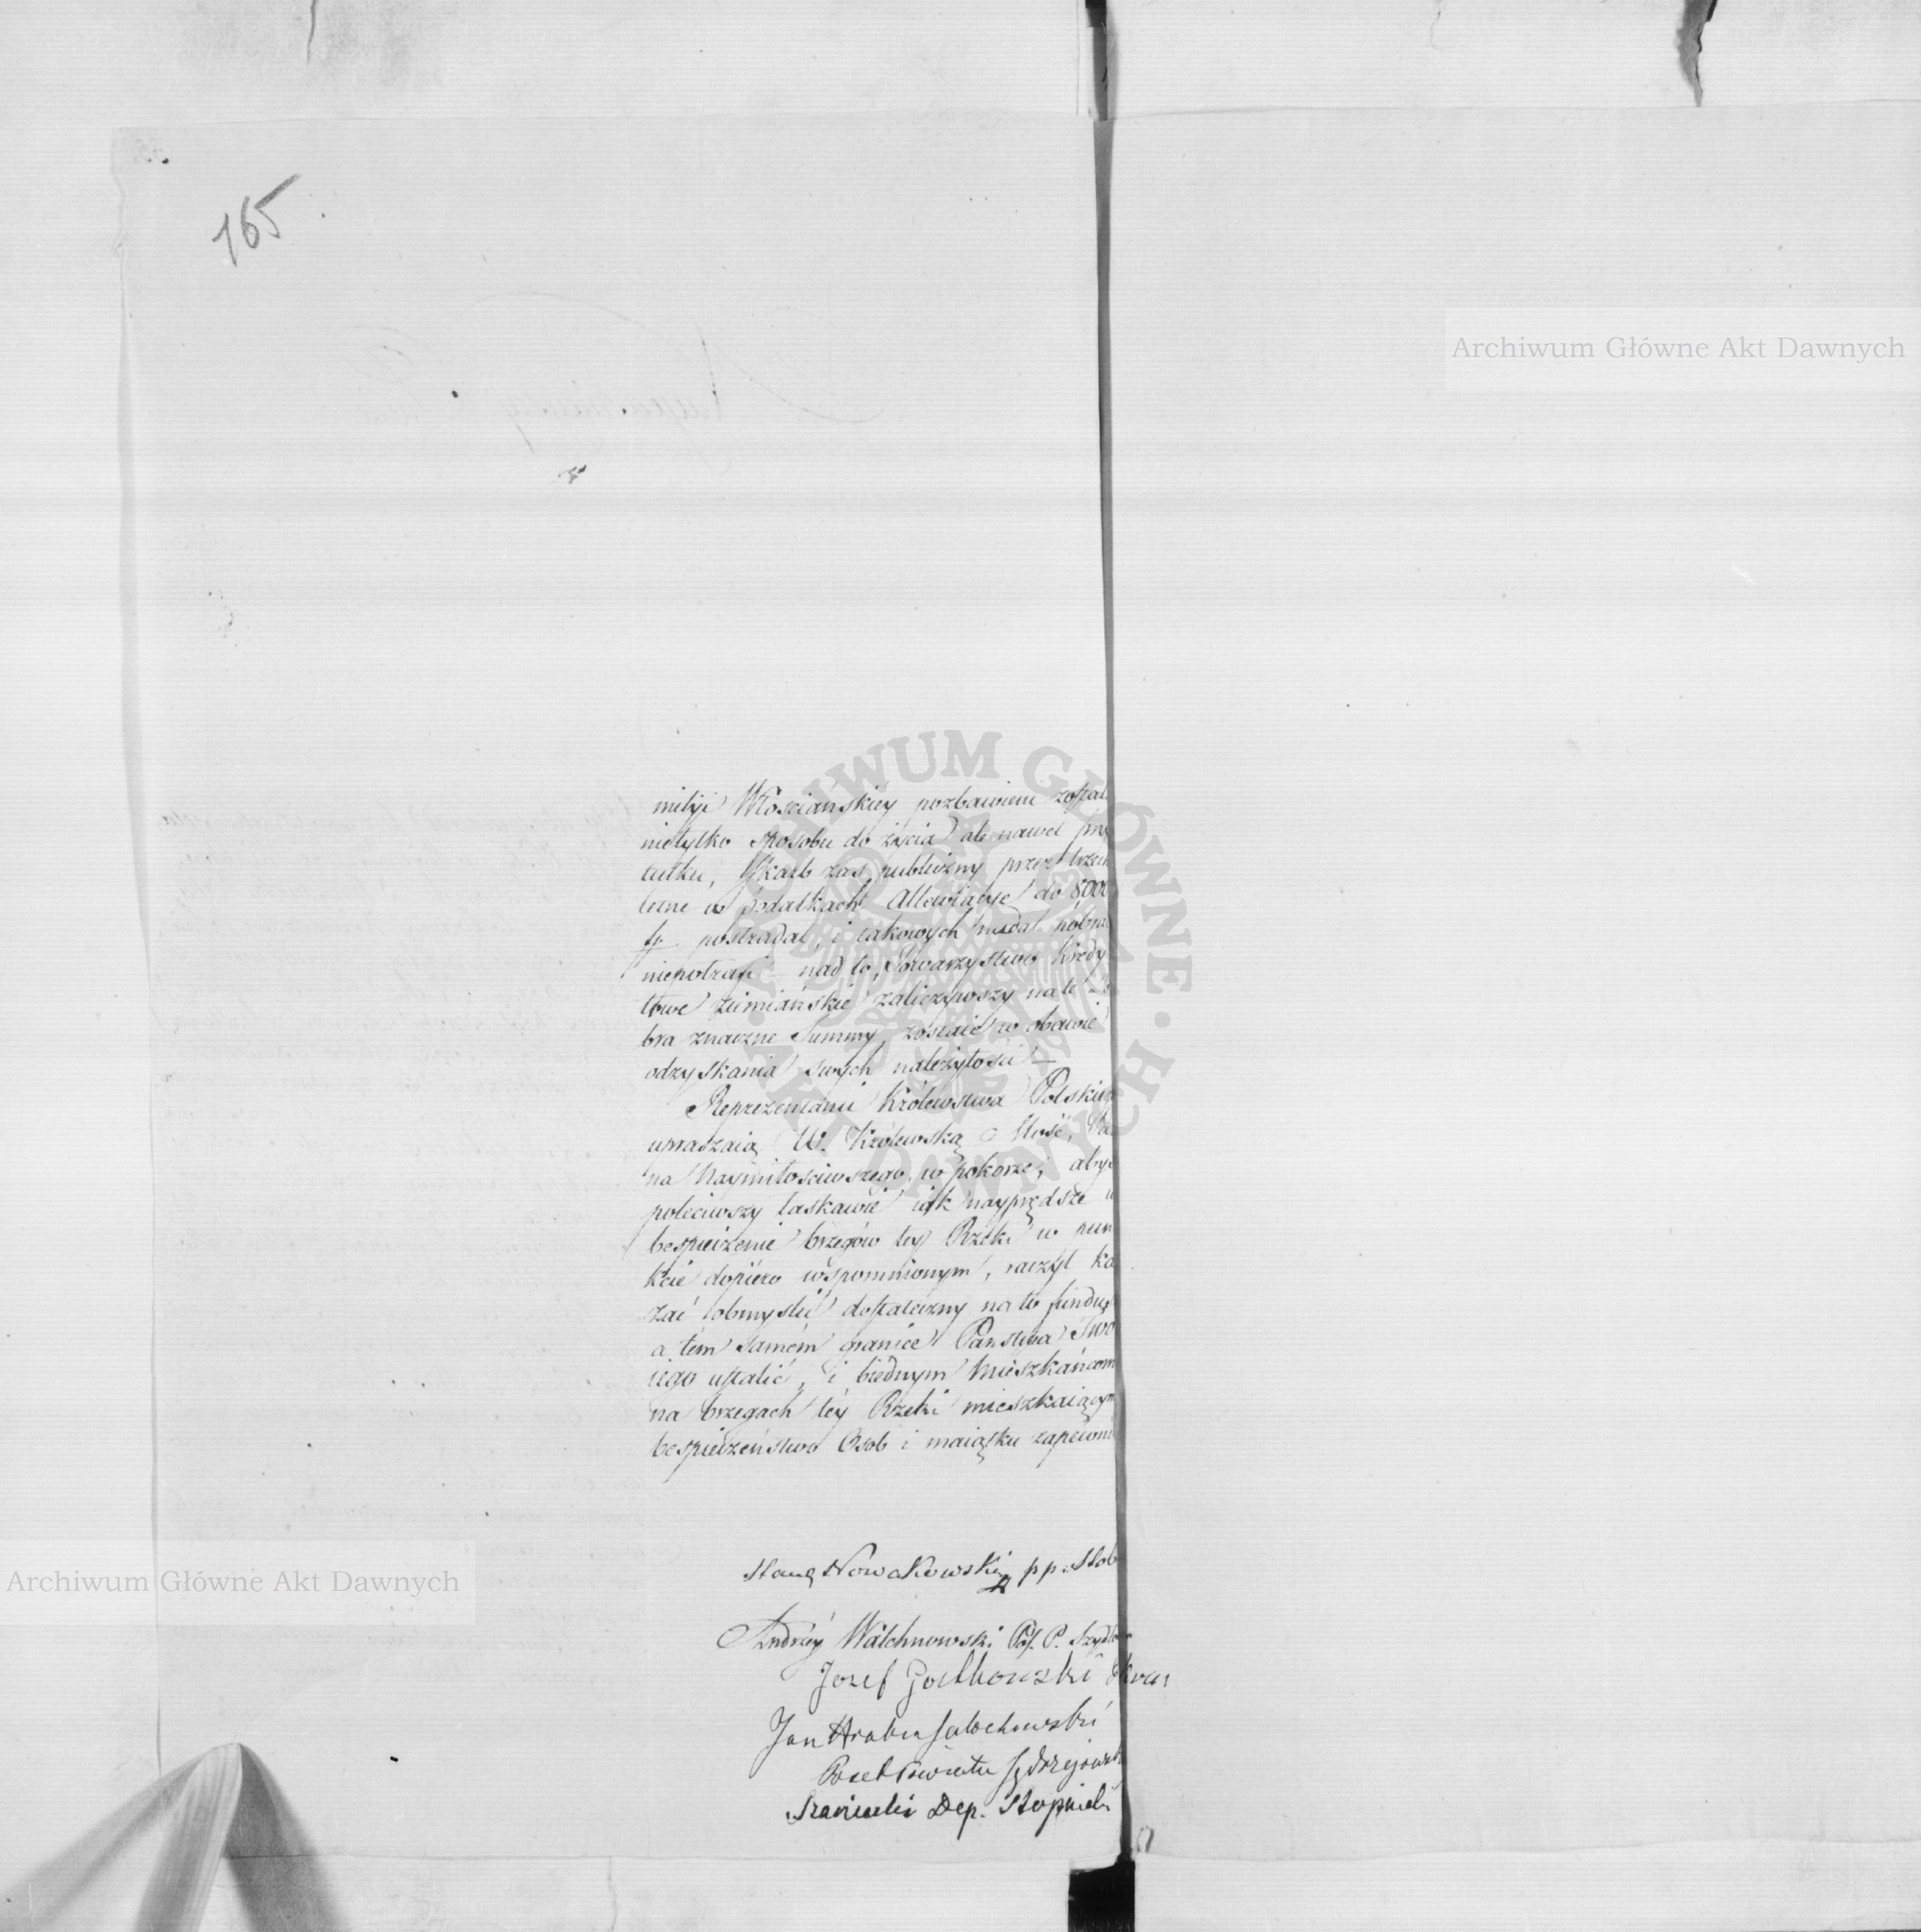 165
Archiwum Główne Akt Dawnych
milyi Włościańskiey pozbawieni zostal
nietylko sposobu do życia ale nawet prz
tułku, Skarb zaś publiczny przez trzech
letne w podatkach Allewiacye do 8000
postradał, i takowych nadal pobra
niepotrafi – nad to, Towarzystwo Kredy
towe Ziemiańskie zaliczywszy na te Do
bra znaczne Summy zostaie w obawie
odzyskania swych należytości –
Reprezentanci Królewstwa Polskieg
upraszaią W. Królewską Mość, Pa
na Naymiłościwszego, w pokorze, abyś
poleciwszy łaskawie iak nayprędsze u
bespieczenie brzegów tey Rzeki w pun
kcie dopiero wspomnionym, raczył ka
zać obmyslić dostateczny na to fundusz
a tém samém granice Państwa Two
iego ustalić, i biednym Mieszkańcom
na brzegach téy Rzeki mieszkaiącym
bespieczeństwo Osob i maiątku zapewni
Nowakowski pp. Stob
Andrzéy Walchnowski Pos. P. Szydło
Jozef
Jan Hrabia Jabochowski
Poseł Powiatu Jędrzejowsk
Dep. Stopnicki
Archiwum Główne Akt Dawnych
ARCHIWUM GŁÓWNE AKT DAWNYCH